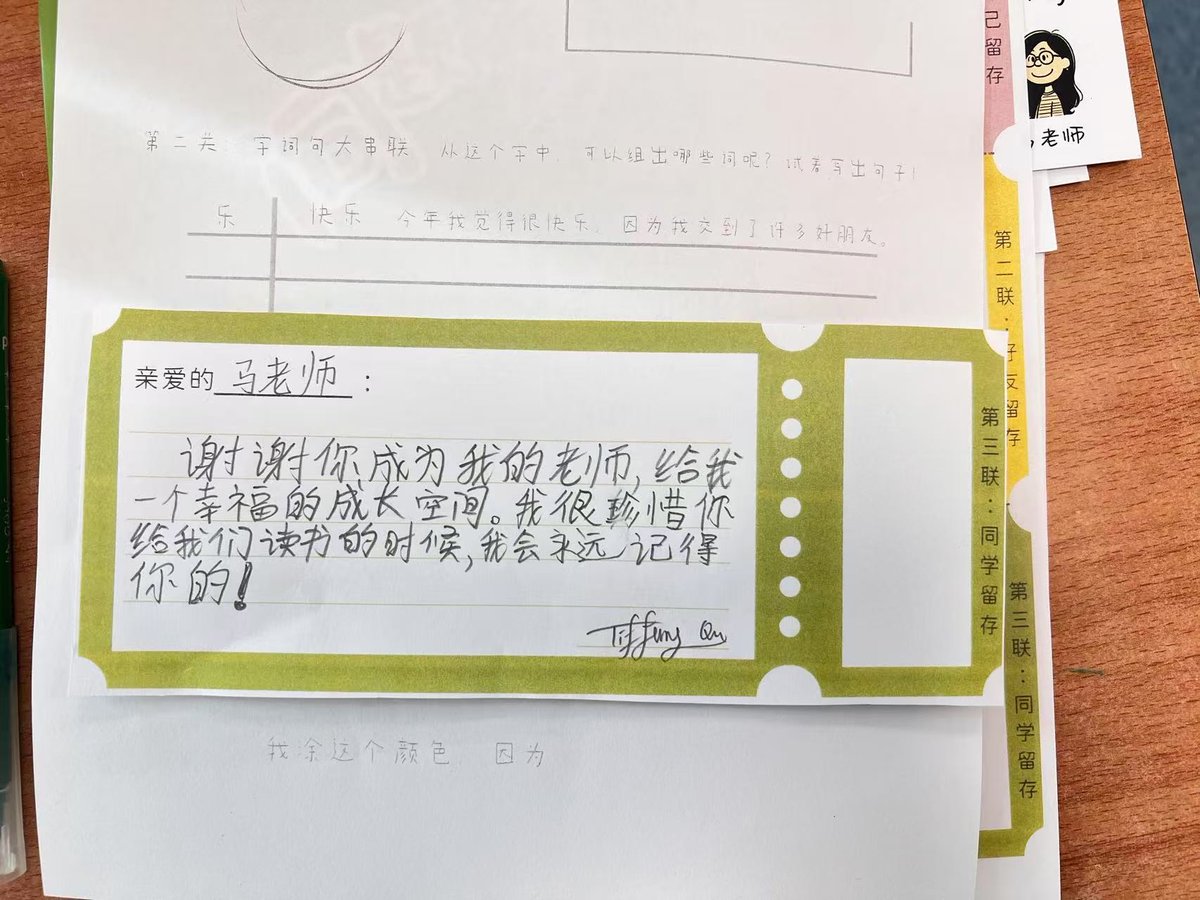 己留存
老师
第二关：字词句大串联 从这个字中，可以组出哪些词呢？试着写出句子！
乐 快乐 今年我觉得很快乐，因为我交到了许多好朋友。
第二联：好友留存
亲爱的马老师：
谢谢你成为我的老师,给我
一个幸福的成长空间。我很珍惜你
给我们读书的时候,我会永远记得
你的!
Tiffany Qu
第三联：同学留存
第三联：同学留存
我涂这个颜色，因为